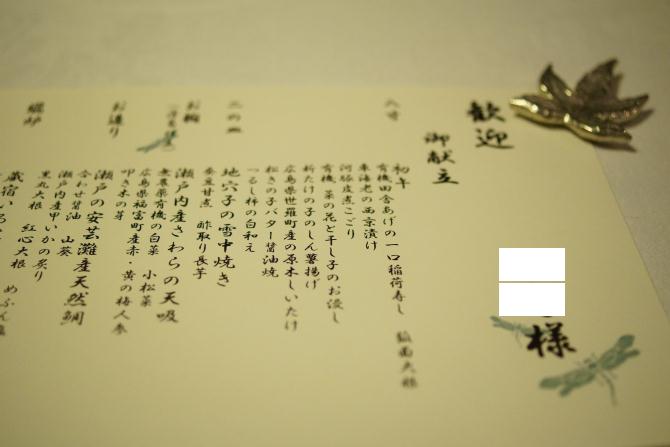 歓迎
様
御献立
八寸
初午
有機田舎あげの一口稲荷寿し
車海老の西京漬け
河豚皮煮こごり
有機菜の花と干し子のお浸し
新たけの子のしん薯揚げ
広島県世羅町産の原木しいたけ
松きの子バター醤油焼
つるし柿の白和え
二の皿
地穴子の雪中焼き
蚕豆甘煮 酢取り長芋
お椀
瀬戸内産さわらの天吸
無農薬有機の白菜 小松菜
広島県福富町産赤・黄の梅人参
叩き木の芽
お造り
瀬戸の安芸灘産天然鯛
合わせ醤油 山葵
瀬戸内産甲いかの炙り
黒丸大根 紅心大根